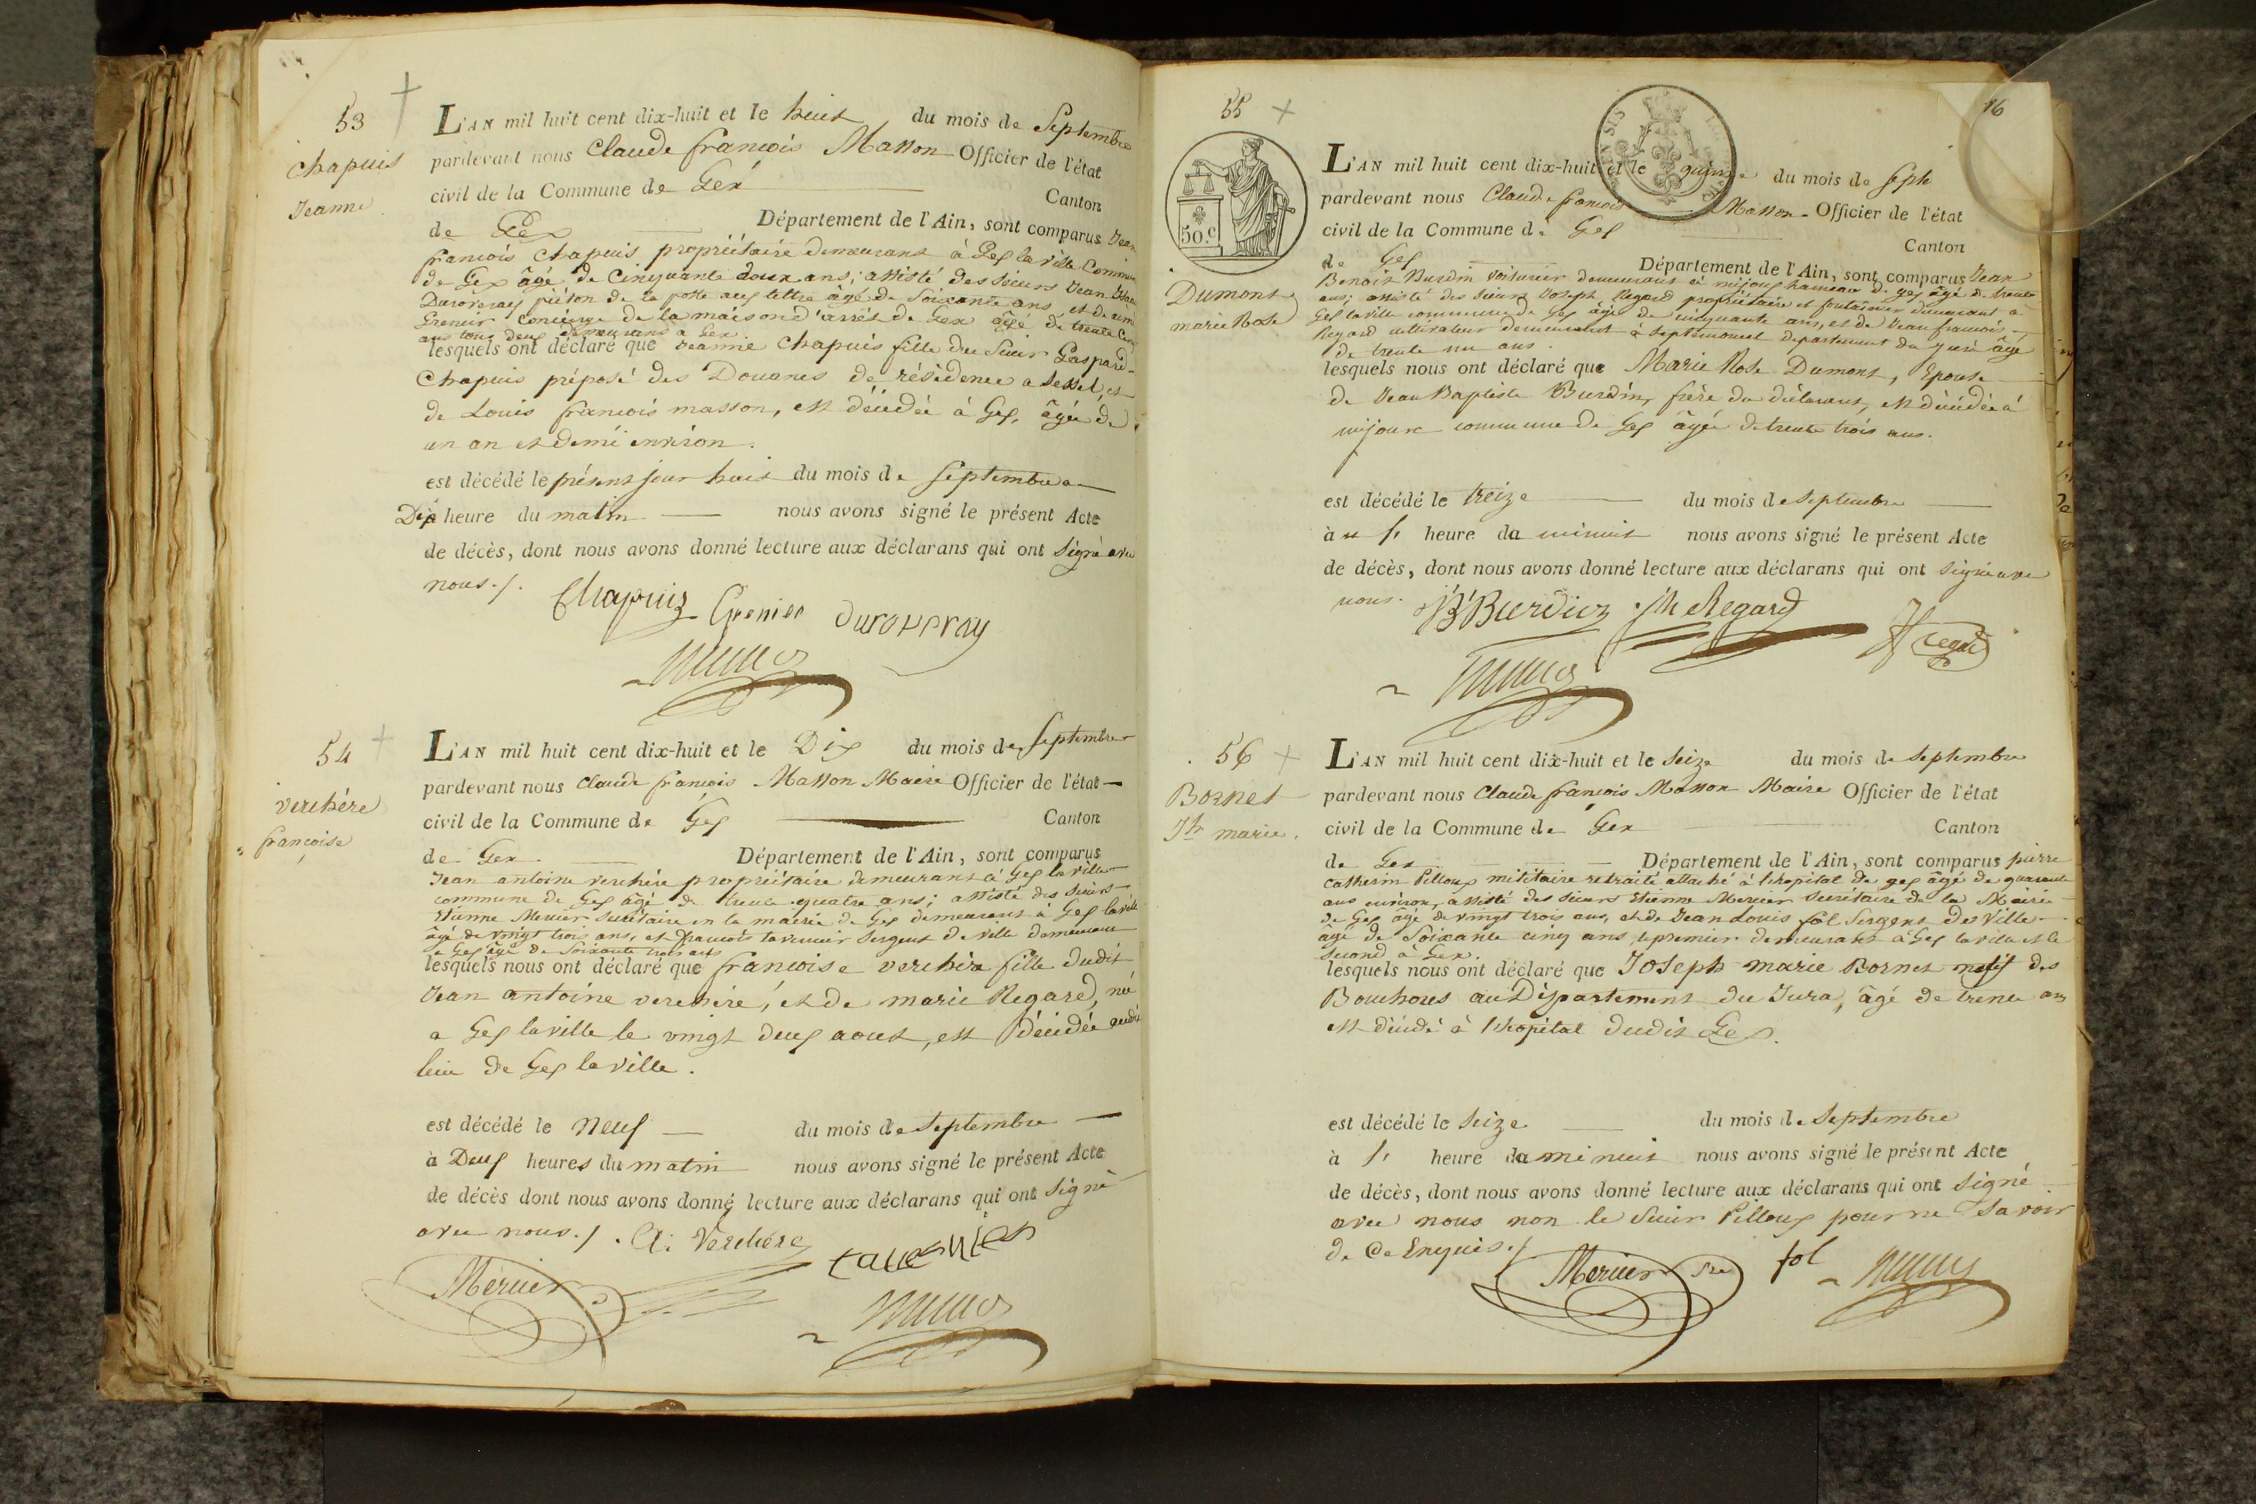 53
Chapuis
Jeanne
L'AN mil huit cent dix-huit et le huit du mois de Septembre
pardevant nous Claude françois Masson Officier de l'état
civil de la Commune de Gex Canton
de Gex Département de l'Ain, sont comparus Jean
françois Chapuis propriétaire demeurant à Gex la ville Commune
de Gex âgé de Cinquante deux ans; assisté des sieurs Jean
Duroveray piéton de la poste aux lettre âgé de Soixante ans et de
Grenier Concierge de la maison d'arrêt de Gex âgé de trente
ans tous deux demeurans a Gex.
lesquels ont déclaré que Jeanne Chapuis fille du Sieur Gaspard
Chapuis préposé des Douanes de résidence a Sessel, et
de Louis françois masson, est décédée à Gex, âgée de
un an et demi environ.
est décédé le présent jour huit du mois de Septembre a
Dix heure du matin nous avons signé le présent Acte
de décès, dont nous avons donné lecture aux déclarans qui ont Signé avec
nous./.
Chapuis Grenier Duroveray
54
verchère
françoise
L'AN mil huit cent dix-huit et le Dix du mois de Septembre
pardevant nous Claude françois Masson Maire Officier de l'état
civil de la Commune de Gex Canton
de Gex Département de l'Ain, sont comparus
Jean antoine verchère propriétaire demeurant à Gex la ville
commune de Gex âgé de trente quatre ans; assisté des Sieurs
Etienne Mercier Secrétaire en la mairie de Gex demeurant à Gex la ville
âgé de vingt trois ans, et françois tavernier Sergent de ville demeurant
a Gex âgé de Soixante trois ans
lesquels nous ont déclaré que françoise verchère fille dudit
Jean antoine verchère, et de marie Regard, née
a Gex la ville le vingt deux aout, est décédée audit
lieu de Gex la ville.
est décédé le neuf du mois de Septembre
à Deux heures du matin nous avons signé le présent Acte
de décès dont nous avons donné lecture aux déclarans qui ont Signé
avec nous./. A. Verchère
Mercier tavernier
16
55
50.c
Dumont
marie Rose
L'AN mil huit cent dix-huit et le quinze du mois de Septe
pardevant nous Claude françois Masson Officier de l'état
civil de la Commune de Gex Canton
de Gex Département de l'Ain, sont comparus Jean
Benoit Burdin voiturier demeurant à mijoux hameau de gex âgé de trente
ans; assisté des sieurs Joseph Regard propriétaire et demeurant a
Gex la ville commune de Gex âgé de cinquante ans, et de Jean françois
Regard cultivateur demeurant à Septmoncel departement du Jura âgé
de trente un ans.
lesquels nous ont déclaré que Marie Rose Dumont, Epouse
de Jean Baptiste Burdin, frère du déclarant, est décédée à
mijoux commune de Gex âgée de trente trois ans.
est décédé le treize du mois de Septembre
à heure da minuit nous avons signé le présent Acte
de décès, dont nous avons donné lecture aux déclarans qui ont Signé avec
nous. JBBurdin Jh Regard
regard
56
Bornet
Jh marie.
L'AN mil huit cent dix-huit et le Seize du mois de Septembre
pardevant nous Claude françois Masson Maire Officier de l'état
civil de la Commune de Gex Canton
de Gex Département de l'Ain, sont comparus pierre
Catherin Pilloux militaire retraité attaché à l'hopital de gex âgé de quarante
ans environ, assisté des Sieurs Etienne Mercier Secrétaire de la Mairie
de Gex âgé de vingt trois ans, et de Jean Louis fol Sergent de Ville
âgé de Soixante cinq ans, le premier demeurant à Gex la ville et le
Second à Gex.
lesquels nous ont déclaré que Joseph marie Bornet natif des
Bouchoux au Département du Jura, âgé de trente ans
est décédé à l'hopital dudit Gex.
est décédé le Seize du mois de Septembre
à heure da minuit nous avons signé le présent Acte
de décès, dont nous avons donné lecture aux déclarans qui ont Signé
avec nous non le Sieur Pilloux pour ne Savoir
de Ce Enquis./
Mercier Sre fol